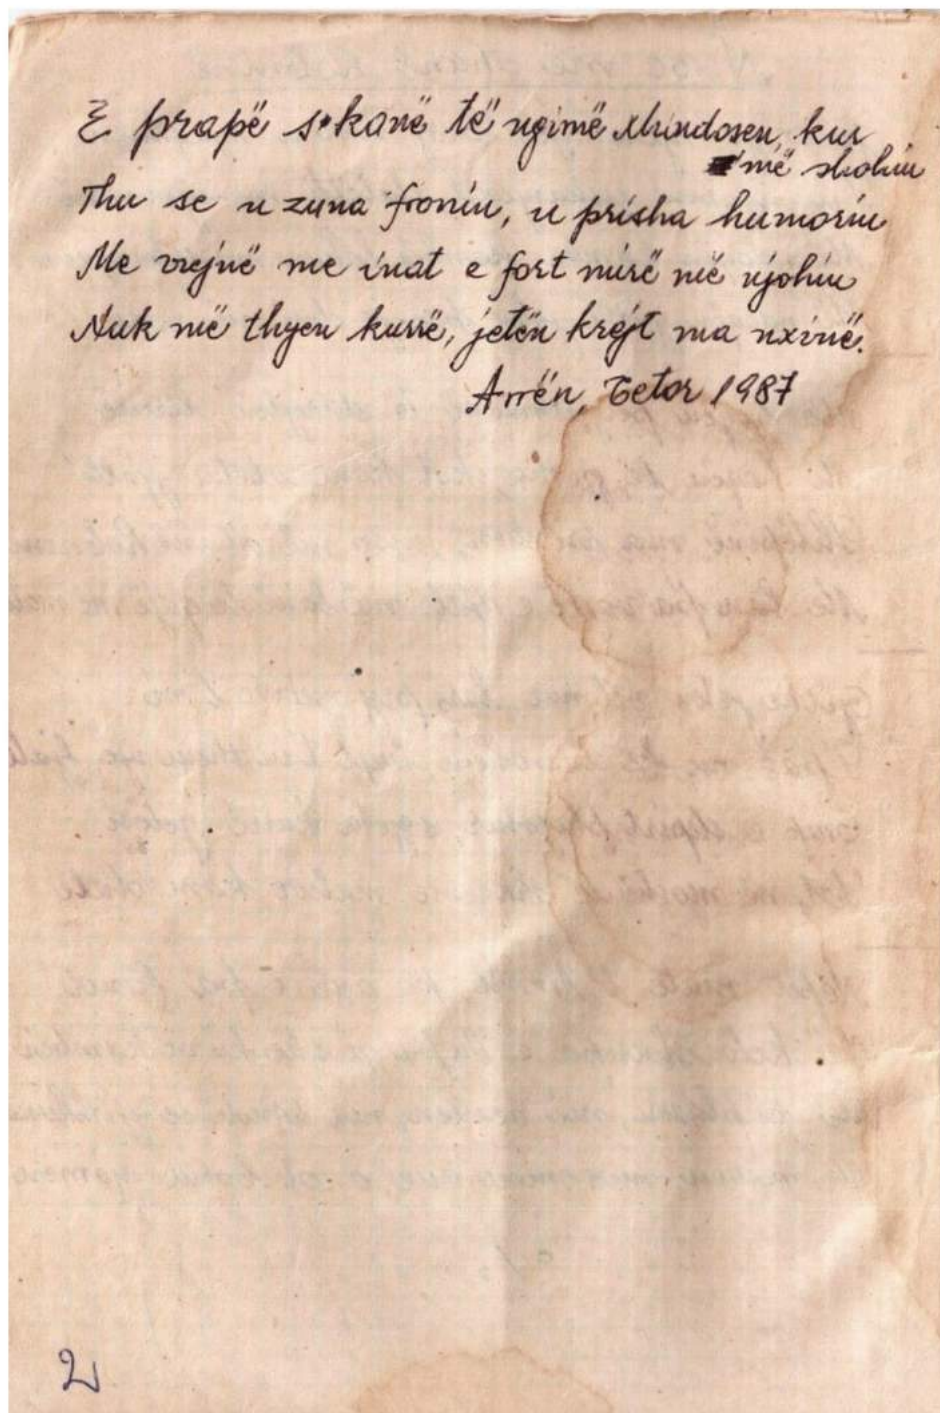 E prapë s'kanë të ngimë xhindosen, kur
më shohin
Thu se u zuna fronin, u prisha humorin
Me vrejnë me inat e fort mirë më njohin
Nuk më thyen kurrë, jetën krejt ma nxinë.
Arrën, Tetor 1987
2